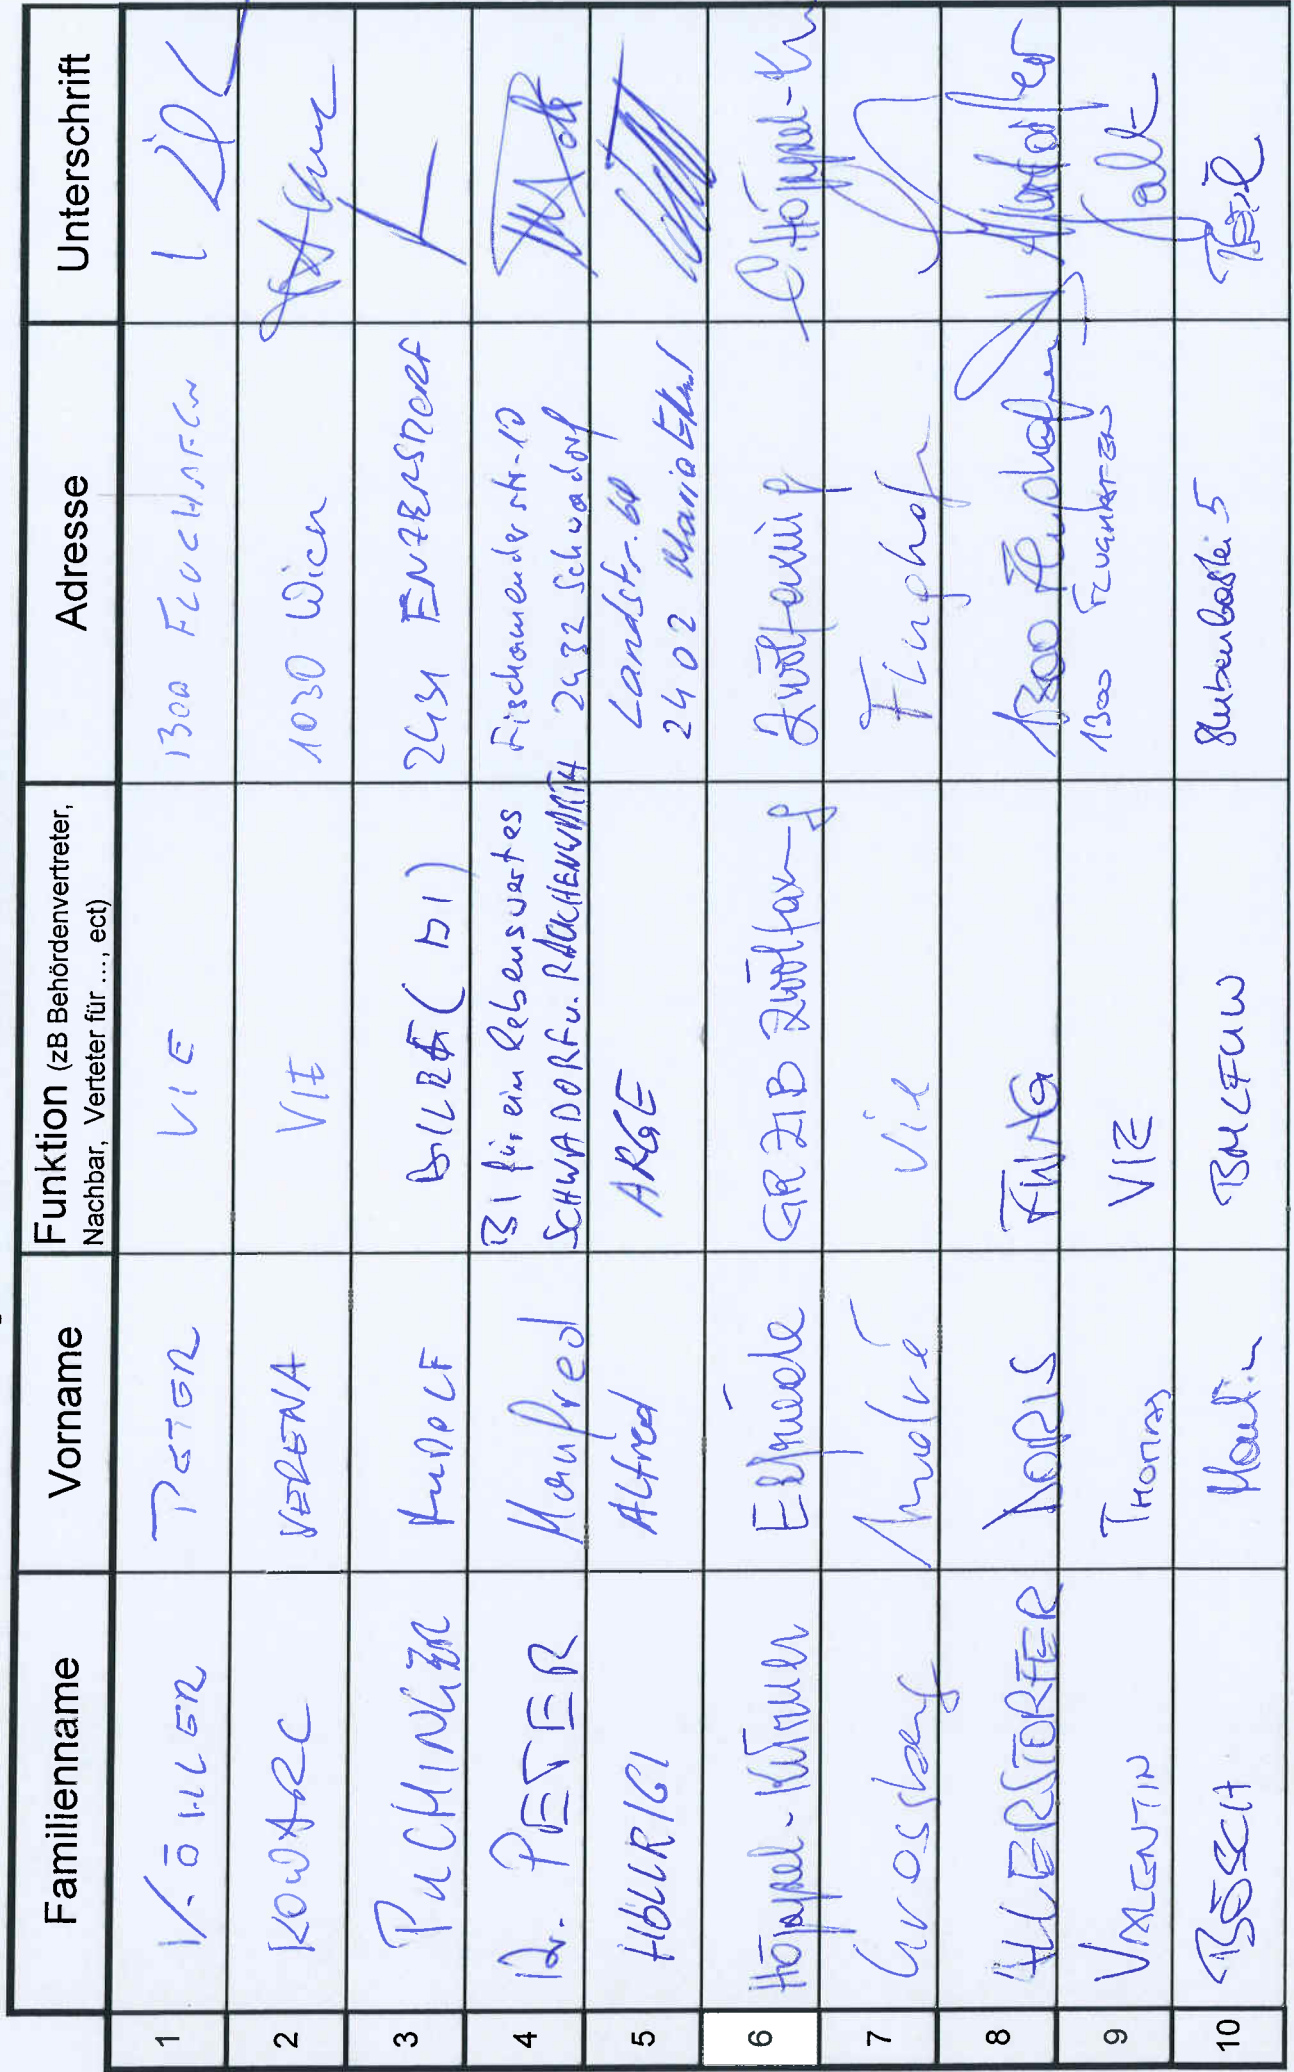 Familienname Vorname Funktion (zB Behördenvertreter, Nachbar, Verteter für ..., ect) Adresse Unterschrift
1 KÖHLER PETER VIE 1300 FLUGHAFEN
2 KOWARC VERENA VIE 1030 Wien
3 PUCHINGER RUDOLF (BI) 2431 ENZERSDORF
4 Dr. PETER Manfred BI für ein lebenswertes Fischamenderstr. 10
SCHWADORF u. RAUCHENWARTH 2432 Schwadorf
5 HÖLLRIGL Alfred ARGE Landstr. 60
2402 Maria Ellend
6 Höppel- Elfriede GR ZIB Zwölfaxing Zwölfaxing
7 André Vie Flughafen
8 ALLERSTORFER DORIS FWAG 1300 Flughafen
9 VALENTIN THOMAS VIE 1300 FLUGHAFEN
10 BÖSCH Martin BMLFUW Stubenbastei 5